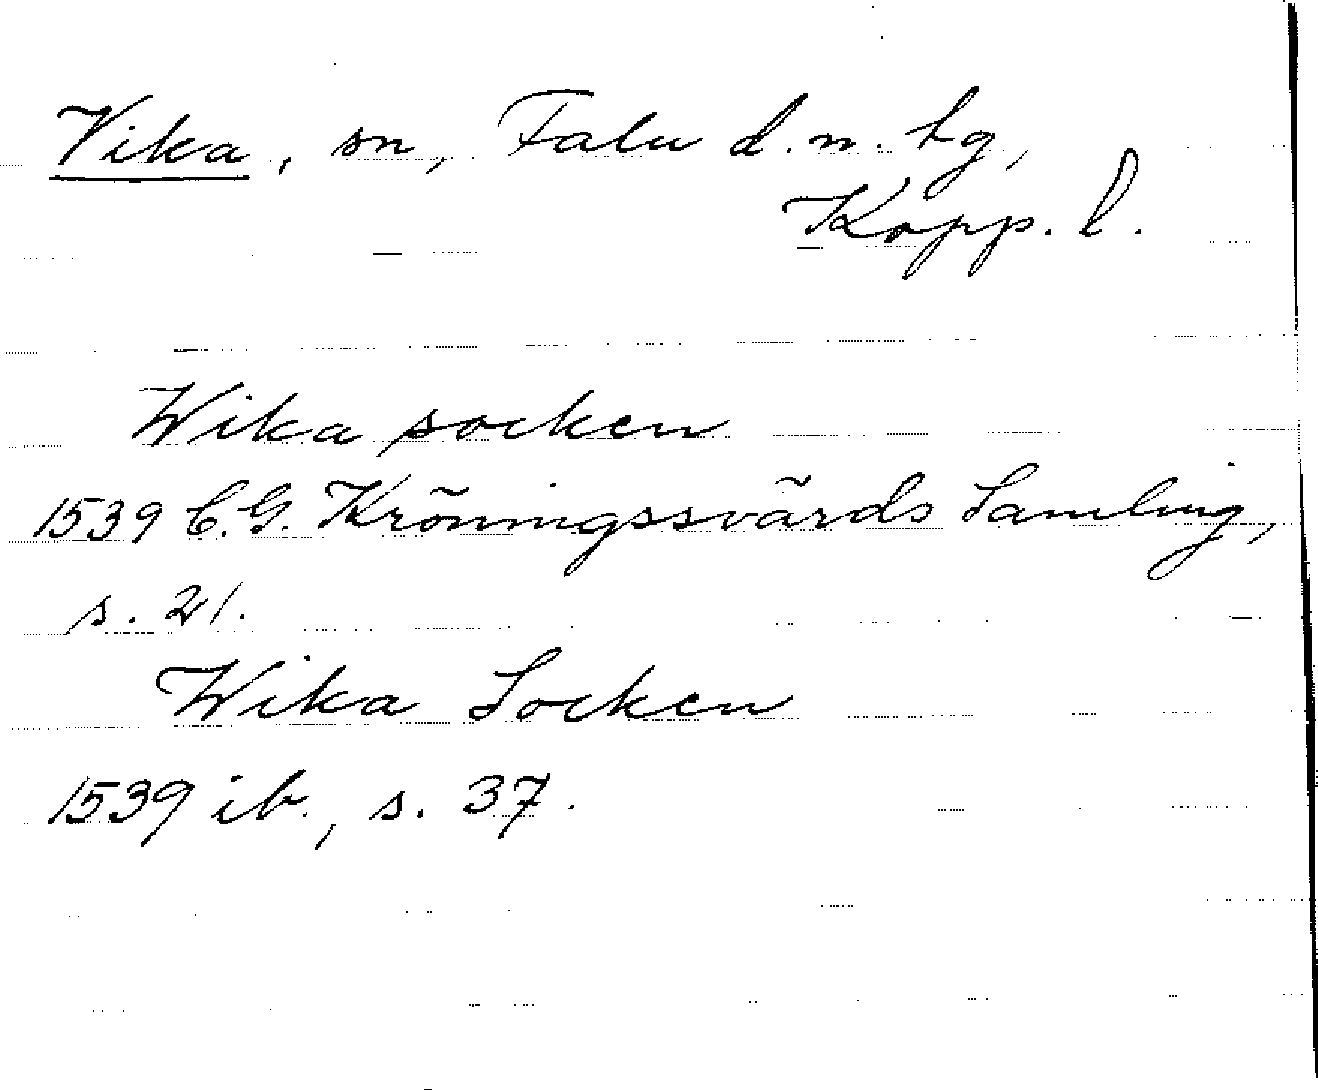 Vika, sn, Falu d.n. tg,
Kopp. l.
Wika socken
1539 C.G. Kröningssvärds Samling,
s. 21.
Wika Socken
1539 ib., s. 37.